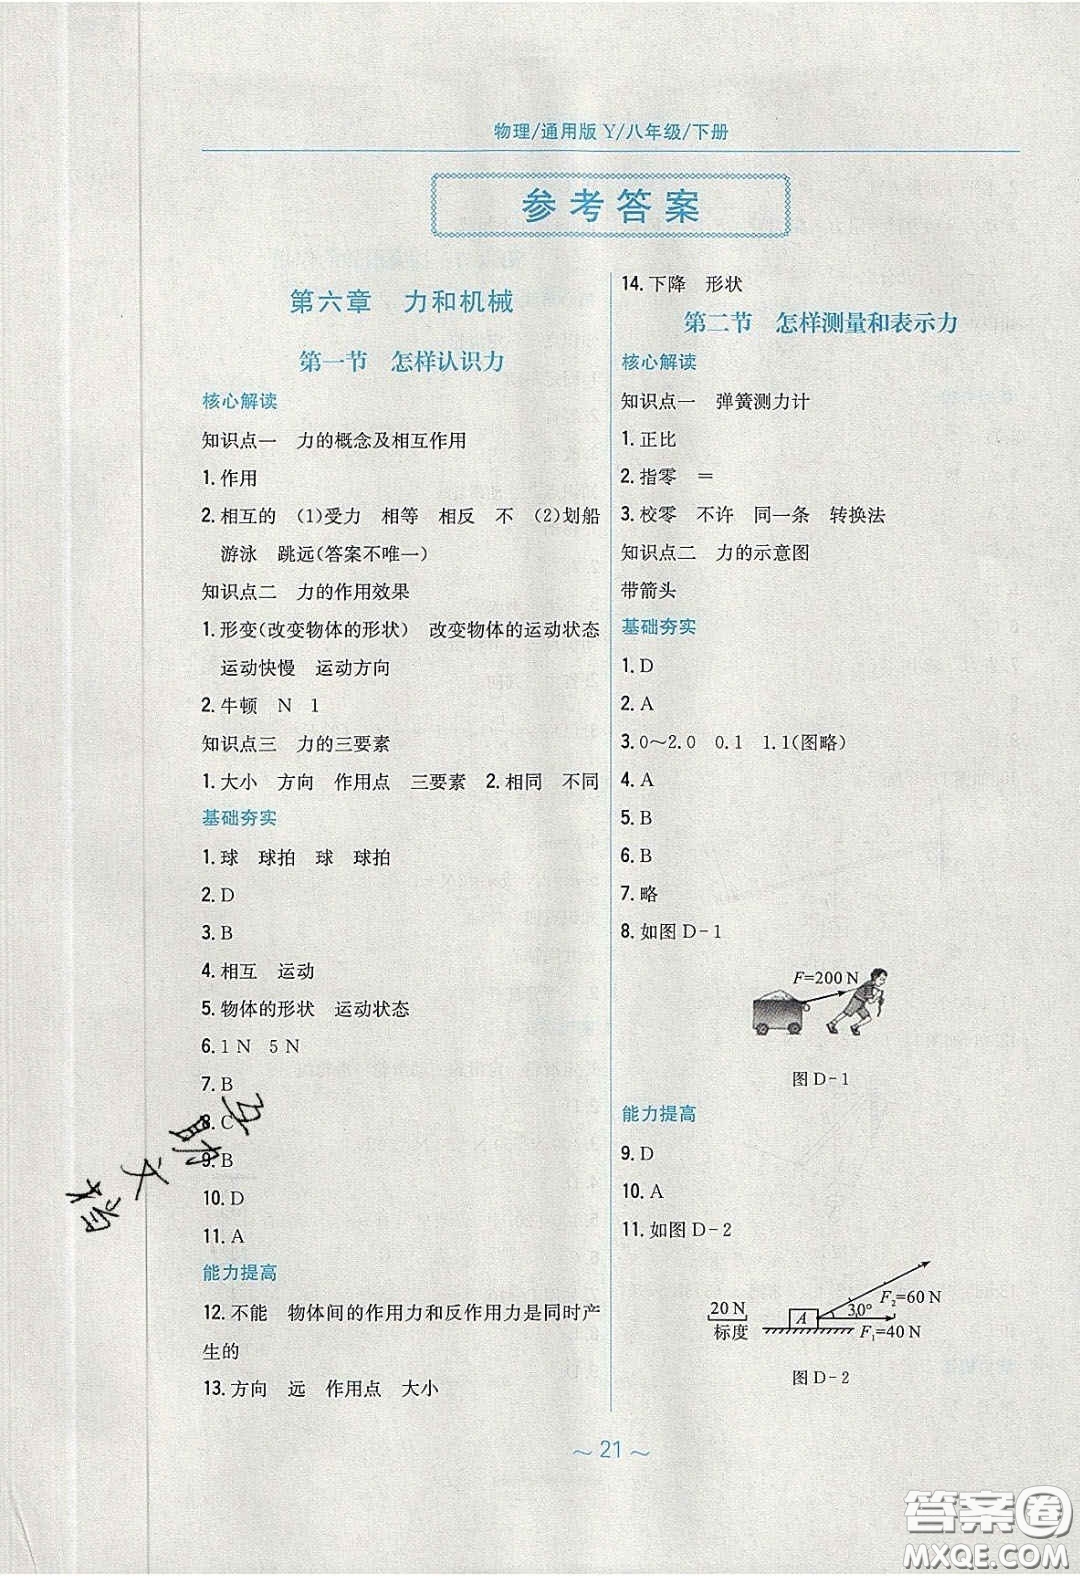 物理/通用版 Y/八年级/下册
参考答案
第六章 力和机械
第一节 怎样认识力
核心解读
知识点一 力的概念及相互作用
1. 作用
2. 相互的 (1)受力 相等 相反 不 (2)划船
游泳 跳远(答案不唯一)
知识点二 力的作用效果
1. 形变(改变物体的形状) 改变物体的运动状态
运动快慢 运动方向
2. 牛顿 N 1
知识点三 力的三要素
1. 大小 方向 作用点 三要素 2. 相同 不同
基础夯实
1. 球 球拍 球 球拍
2. D
3. B
4. 相互 运动
5. 物体的形状 运动状态
6. 1 N 5 N
7. B
8. C
9. B
10. D
11. A
能力提高
12. 不能 物体间的作用力和反作用力是同时产
生的
13. 方向 远 作用点 大小
14. 下降 形状
第二节 怎样测量和表示力
核心解读
知识点一 弹簧测力计
1. 正比
2. 指零 =
3. 校零 不许 同一条 转换法
知识点二 力的示意图
带箭头
基础夯实
1. D
2. A
3. 0～2.0 0.1 1.1(图略)
4. A
5. B
6. B
7. 略
8. 如图 D-1
F=200 N
图 D-1
能力提高
9. D
10. A
11. 如图 D-2
20 N
标度
A
30°
F₂=60 N
F₁=40 N
图 D-2
～ 21 ～
互助文档
答案圈
MXQE.COM